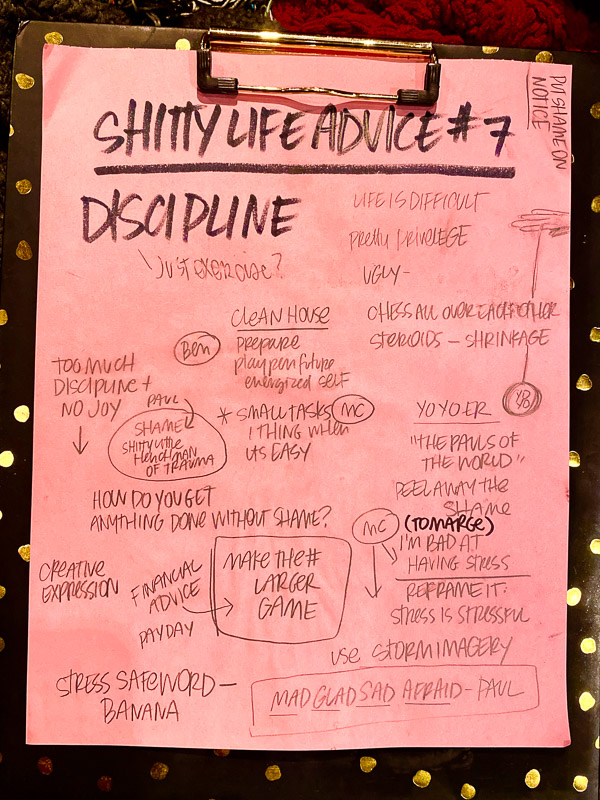 PUT SHAME ON
NOTICE
SHITTY LIFE ADVICE #7
DISCIPLINE
\ Just exercise?
LIFE IS DIFFICULT
pretty privelege
UGLY-
CHESS ALL OVER EACH OTHER
STEROIDS - SHRINKAGE
Ben
CLEAN HOUSE
PREPARE
playpen future
energized self
TOO MUCH
DISCIPLINE +
NO JOY
PAUL
SHAME
SHITTY LITTLE
HENCHMAN
OF TRAUMA
* SMALL TASKS MC
1 THING WHEN
ITS EASY
YO
YOYOER
"THE PAULS OF
THE WORLD"
PEEL AWAY THE
SHAME
HOW DO YOU GET
ANYTHING DONE WITHOUT SHAME?
MC (TO MARGE)
I'M BAD AT
HAVING STRESS
REFRAME IT:
STRESS IS STRESSFUL
USE STORM IMAGERY
CREATIVE
EXPRESSION
FINANCIAL
ADVICE
PAYDAY
MAKE THE #
LARGER
GAME
STRESS SAFEWORD -
BANANA
MAD GLAD SAD AFRAID - PAUL